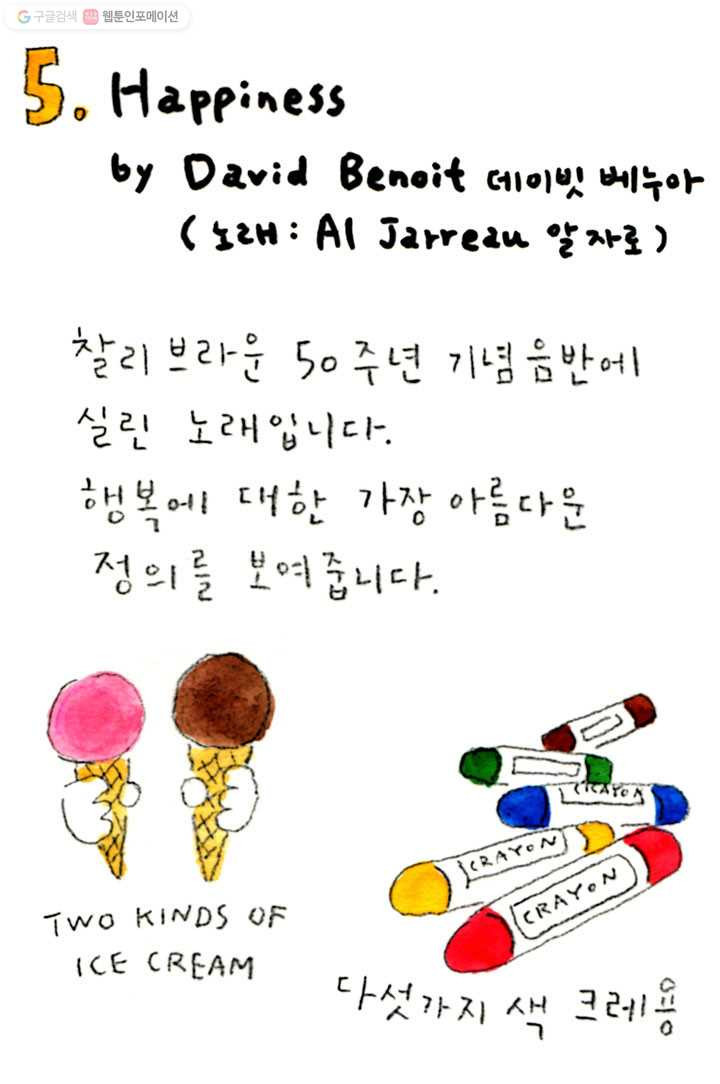 구글검색 웹툰인포메이션
5. Happiness
by David Benoit 데이빗 베누아
(노래: Al Jarreau 알 자로)
찰리 브라운 50주년 기념음반에
실린 노래입니다.
행복에 대한 가장 아름다운
정의를 보여줍니다.
CRAYON
CRAYON
CRAYON
TWO KINDS OF
ICE CREAM
다섯가지 색 크레용